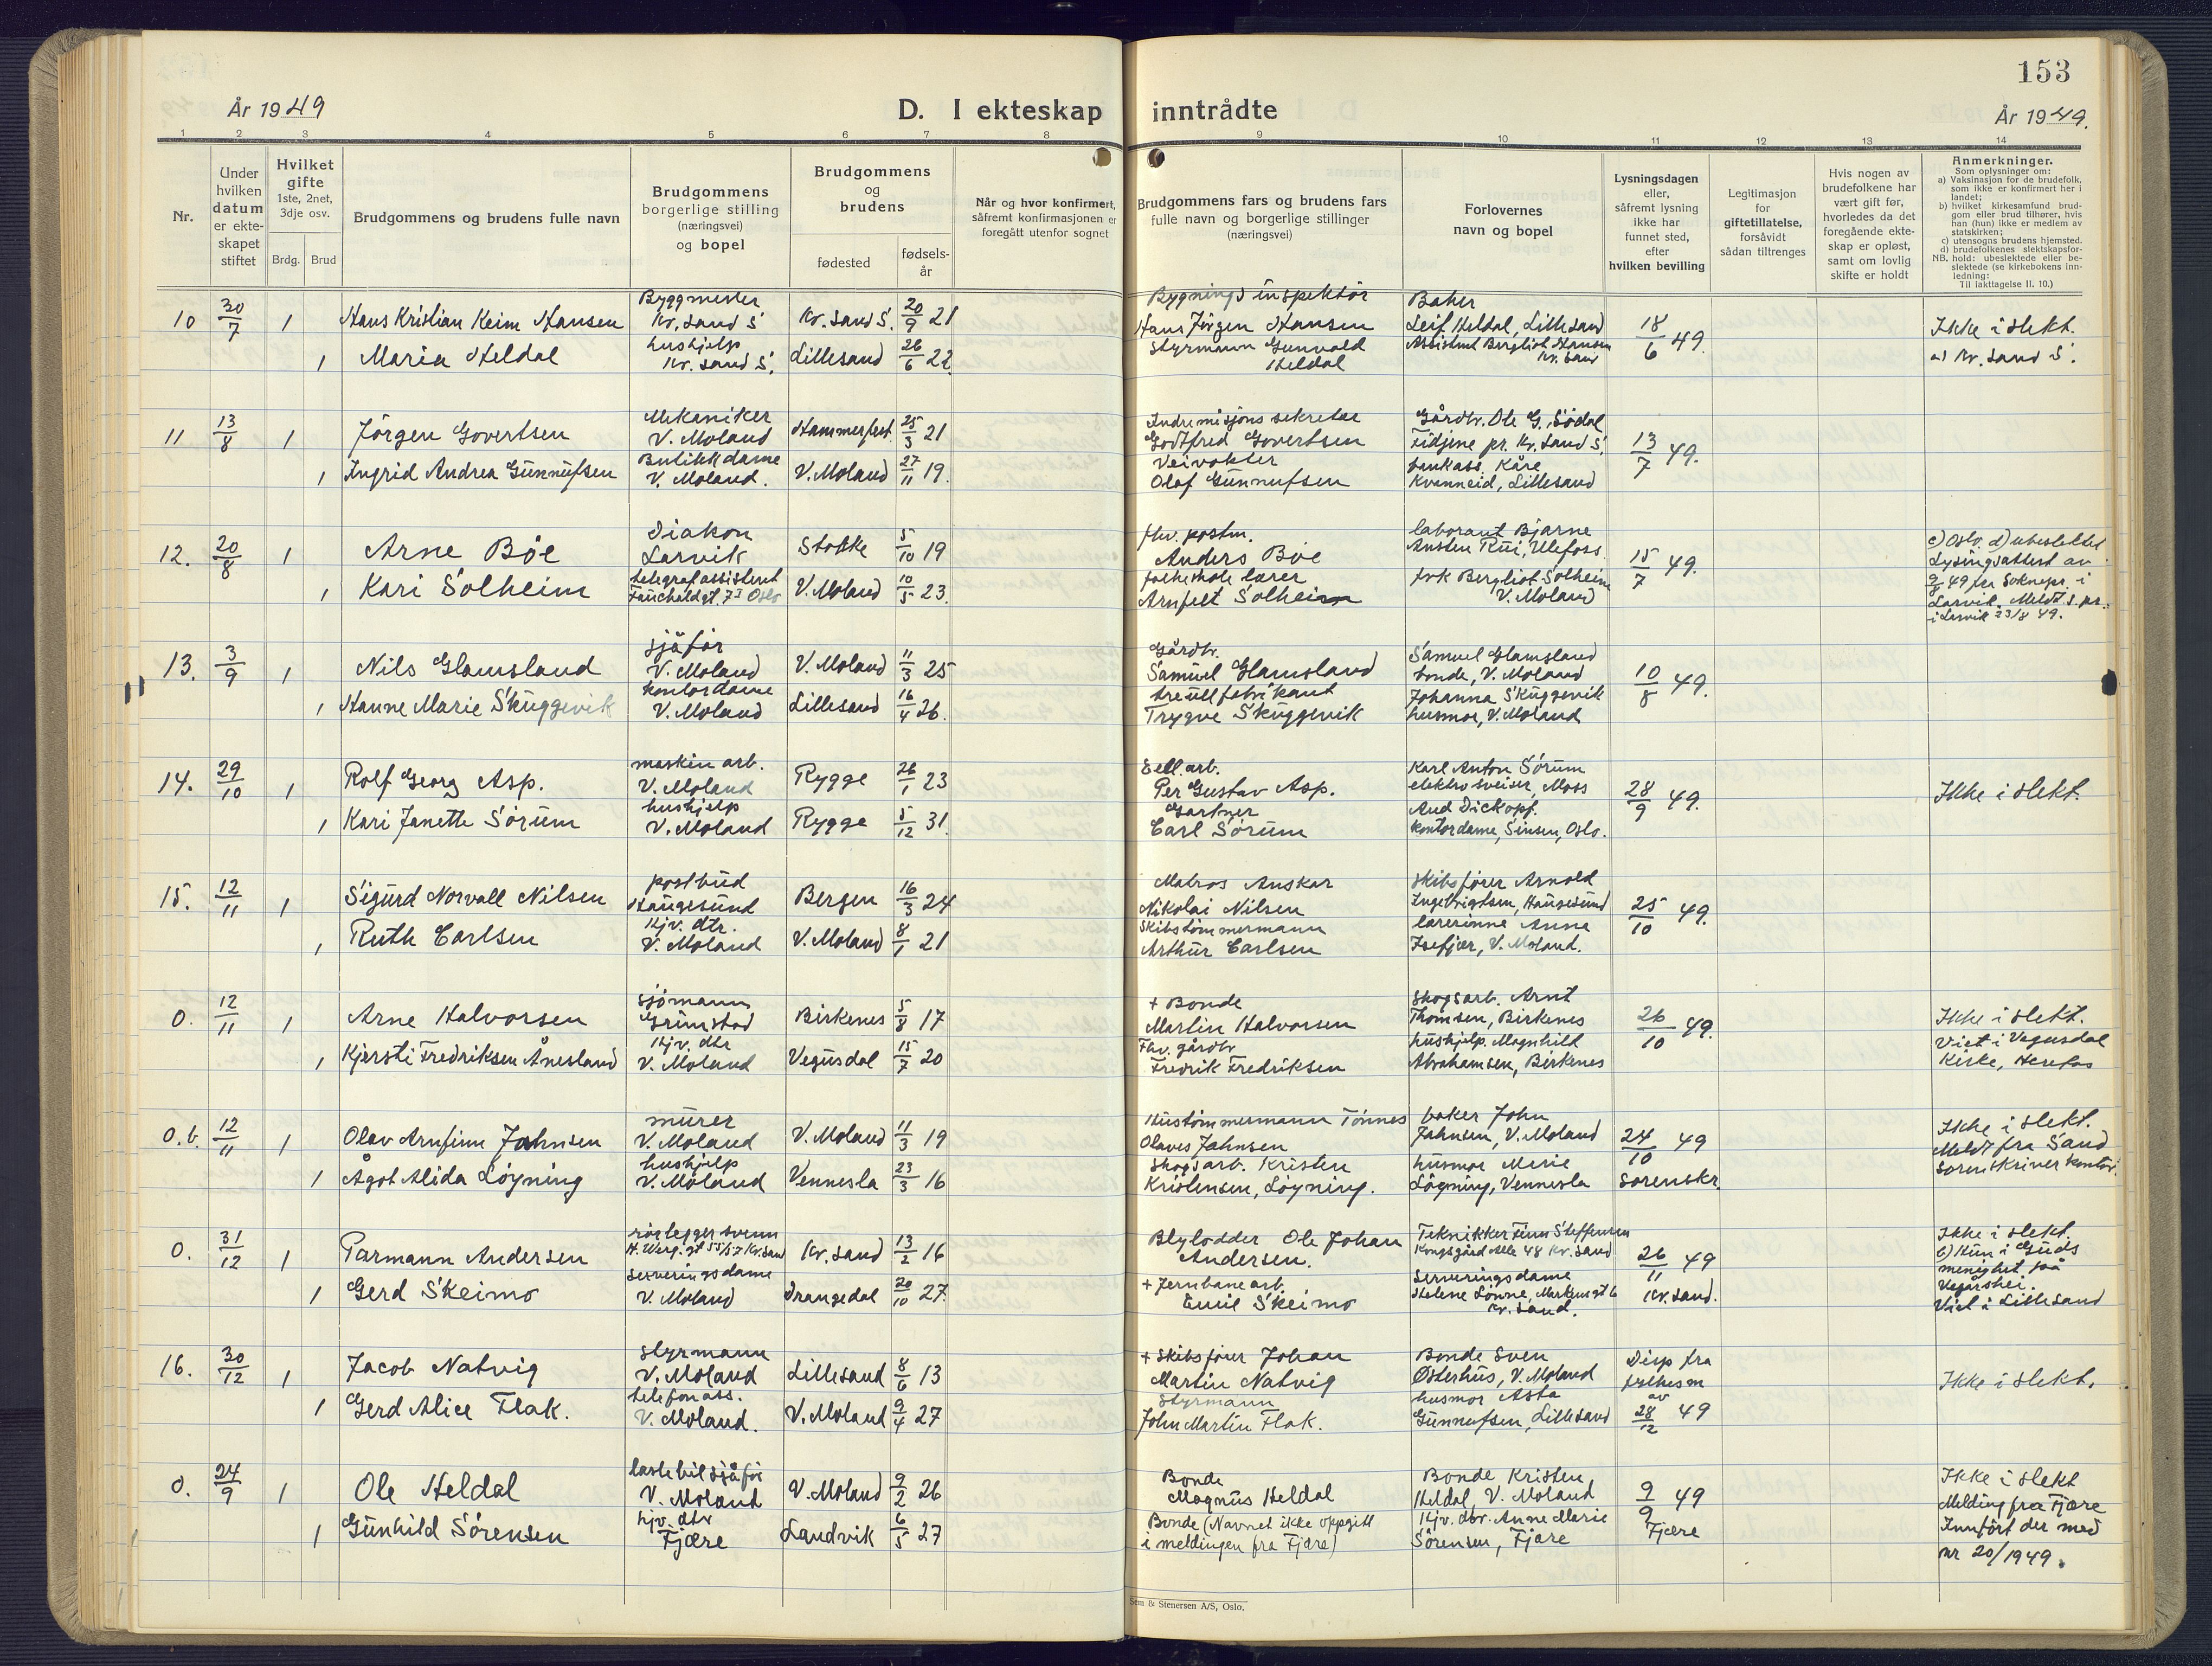 153
År 1949
D. I ekteskap inntrådte
År 1949.
1 2 3 4 5 6 7 8 9 10 11 12 13 14
Nr.
Under
hvilken
datum
er ekte-
skapet
stiftet
Hvilket
gifte
1ste, 2net,
3dje osv.
Brdg. Brud
Brudgommens og brudens fulle navn
Brudgommens
borgerlige stilling
(næringsvei)
og bopel
Brudgommens
og
brudens
fødested
fødsels-
år
Når og hvor konfirmert,
såfremt konfirmasjonen er
foregått utenfor sognet
Brudgommens fars og brudens fars
fulle navn og borgerlige stillinger
(næringsvei)
Forlovernes
navn og bopel
Lysningsdagen
eller,
såfremt lysning
ikke har
funnet sted,
efter
hvilken bevilling
Legitimasjon
for
giftetillatelse,
forsåvidt
sådan tiltrenges
Hvis nogen av
brudefolkene har
vært gift før,
hvorledes da det
foregående ekte-
skap er opløst,
samt om lovlig
skifte er holdt
Anmerkninger.
Som oplysninger om:
a) Vaksinasjon for de brudefolk,
som ikke er konfirmert her i
landet;
b) hvilket kirkesamfund brud-
gom eller brud tilhører, hvis
han (hun) ikke er medlem av
statskirken;
c) utensogns brudens hjemsted.
d) brudefolkenes slektskapsfor-
NB. hold: ubeslektede eller be-
slektede (se kirkebokens inn-
ledning:
Til iakttagelse II. 10.)
10 30/7 1 Hans Kristian Keim Hansen
Byggmester
Kr. sand S
Kr. sand S. 20/9 21
1 Maria Heldal
hushjelp
Kr. sand S.
Lillesand 26/6 22.
Bygnings inspektør
Hans Jörgen Hansen
Styrmann Gunvald
Heldal
Baker
Leif Heldal, Lillesand
Assistent Bergliot Hansen
Kr. sand
18/6 49.
Ikke i slekt.
Kr. sand S.
11 13/8 1 Jörgen Govertsen
Mekaniker
V. Moland
Hammerfest 25/3 21
1 Ingrid Andrea Gunnufsen
Butikkdame
V. Moland.
V. Moland 27/11 19.
Indremisjons sekretær
Godtfred Govertsen
Veivokter
Olaf Gunnufsen
Gårdbr. Ole G. Södal
Fidjene pr. Kr. sand S.
bankass. Kåre
Kvanneid, Lillesand
13/7 49.
12. 20/8 1 Arne Böe
Diakon
Larvik
Stokke 5/10 19
1 Kari Solheim
telegrafassistent
Fauchaldgt. 7 I Oslo
V. Moland 10/5 23.
fhv. postm.
Anders Böe
folkeskole lærer
Arnfelt Solheim
laborant Bjarne
Austen Rui, Ulefoss
frk Bergliot Solheim
V. Moland
15/7 49.
c) Oslo. d) ubeslektet
Lysingsattest av
49 fra Soknepr. i
Larvik. Meldt s. pr.
i Larvik 23/8 49.
13. 3/9 1 Nils Glamsland
sjåfør
V. Moland
V. Moland 11/3 25
1 Hanne Marie Skuggevik
kontordame
V. Moland
Lillesand 16/4 26.
Gårdbr.
Samuel Glamsland
treullfabrikant
Trygve Skuggevik
Samuel Glamsland
bonde, V. Moland
Johanna Skuggevik
husmor, V. Moland
10/8 49.
14. 29/10 1 Rolf Georg Asp.
maskin arb.
V. Moland
Rygge 26/1 23
1 Kari Janette Sörum
hushjelp
V. Moland
Rygge 5/12 31.
Cell. arb.
Per Gustav Asp.
Gartner
Carl Sörum
Karl Anton Sörum
elektrosveiser, Moss
Aud Dickopf.
kontordame, Sinsen, Oslo.
28/9 49.
Ikke i slekt.
15. 12/11 1 Sigurd Norvall Nilsen
postbud
Haugesund
Bergen 16/3 24
1 Ruth Carlsen
Hjv. dtr.
V. Moland
V. Moland 8/1 21
Matros Anskar
Nikolai Nilsen
Skibstömmermann
Arthur Carlsen
Skibsfører Arnold
Ingebrigtsen, Haugesund
lærerinne Anna
Isefjær, V. Moland.
25/10 49.
0. 12/11 1 Arne Halvorsen
sjömann
Grimstad
Birkenes 5/8 17
1 Kjersti Fredriksen Ånesland
Hjv. dtr
V. Moland
Vegusdal 15/7 20
+ Bonde
Martin Halvorsen
Fhv. gårdbr
Fredrik Fredriksen
Skogsarb. Arnt
Thomsen, Birkenes
hushjelp. Magnhild
Abrahamsen, Birkenes
26/10 49.
Ikke i slekt.
Viet i Vegusdal
Kirke, Herefoss
0.b. 12/11 1 Olav Arnfinn Jahnsen
murer
V. Moland
V. Moland 11/3 19
1 Ågot Alida Löyning
hushjelp
V. Moland
Vennesla 23/3 16
Hustömmermann Tönnes
Olaves Jahnsen
Skogsarb. Kristen
Kristensen, Löyning.
baker John
Jahnsen, V. Moland
husmor Merie
Löyning, Vennesla
24/10 49
sorenskr.
Ikke i slekt.
Meldt fra Sand
sorenskriverkontor.
0. 31/12 1 Tarmann Andersen
rørleggersvenn
H. Werg. gt 55/57 Kr. sand
Kr. sand 13/2 16
1 Gerd Skeimo
serveringsdame
V. Moland
Drangedal 20/10 27.
Blylodder Ole Johan
Andersen.
+ Jernbanearb.
Emil Skeimo
Teknikker Finn Steffensen
Kongsgård alle 48 Kr. sand
serveringsdame
Helene Lönne, Markensgt 6
Kr. sand.
26/11 49
Kr. sand.
Ikke i slekt.
b) Hun i Guds
menighet på
Vegårshei.
Viet i Lillesand
16. 30/12 1 Jacob Natvig
Styrmann
V. Moland
Lillesand 8/6 13
1 Gerd Alice Flak.
telefonass.
V. Moland.
V. Moland 9/4 27
+ Skibsfører Johan
Martin Natvig
Styrmann
John Martin Flak.
Bonde Sven
Østerhus, V. Moland
husmor Asta
Gunnufsen, Lillesand
Disp fra
av
28/12 49
Ikke i slekt.
0. 24/9 1 Ole Heldal
lastebilsjåfør
V. Moland
V. Moland 9/2 26
1 Gunhild Sörensen
hjv. dtr
Fjære
Landvik 6/5 27
Bonde
Magnus Heldal
Bonde (Navnet ikke oppgitt
i meldingen fra Fjære)
Bonde Kristen
Heldal, V. Moland
Hjv. dtr. Anne Marie
Sörensen, Fjære
9/9 49
Fjære
Ikke i slekt
Melding fra Fjære
Innført der med
nr 20/1949.
Sem & Stenersen A/S, Oslo.